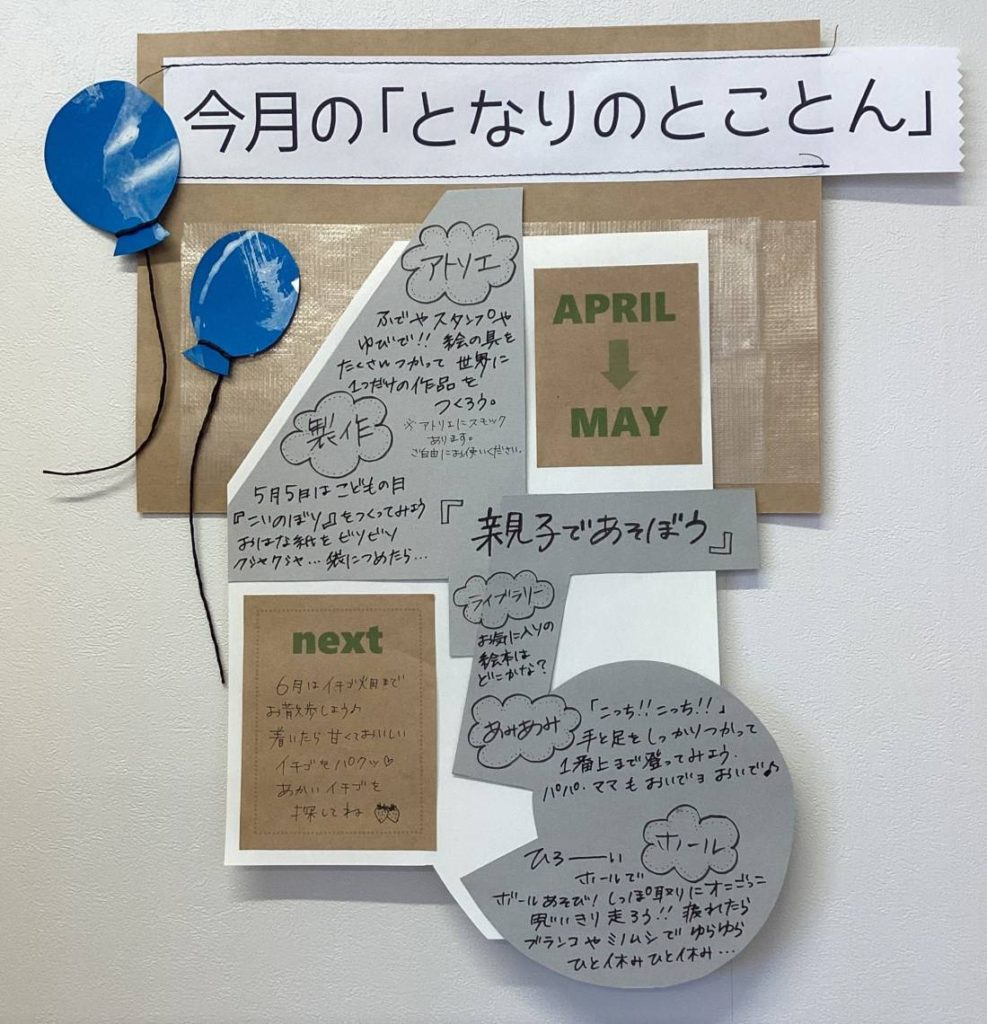 今月の「となりのとことん」
アトリエ
ふでやスタンプや
ゆびで!! 絵の具を
たくさんつかって 世界に
1つだけの作品を
つくろう。
※アトリエにスモック
あります。
ご自由にお使いください。
APRIL
MAY
製作
5月5日はこどもの日
『こいのぼり』をつくってみよう
おはな紙をビリビリ
クシャクシャ…袋につめたら…
『親子であそぼう』
ライブラリー
お気に入りの
絵本は
どこかな?
あみあみ
「こっち!!こっち!!」
手と足をしっかりつかって
1番上まで登ってみよう。
パパ・ママもおいでョおいで♪
next
6月はイチゴ畑まで
お散歩しよう♪
着いたら甘くておいしい
イチゴをパクッ♡
あかいイチゴを
探してね
ホール
ひろーい
ホールで
ボールあそび!しっぽ取りにオニごっこ
思いきり走ろう!! 疲れたら
ブランコやミノムシでゆらゆら
ひと休みひと休み…